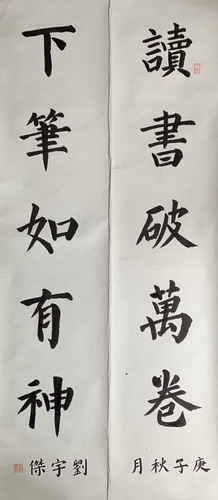 讀書破萬卷
庚子秋月
下筆如有神
劉宇傑